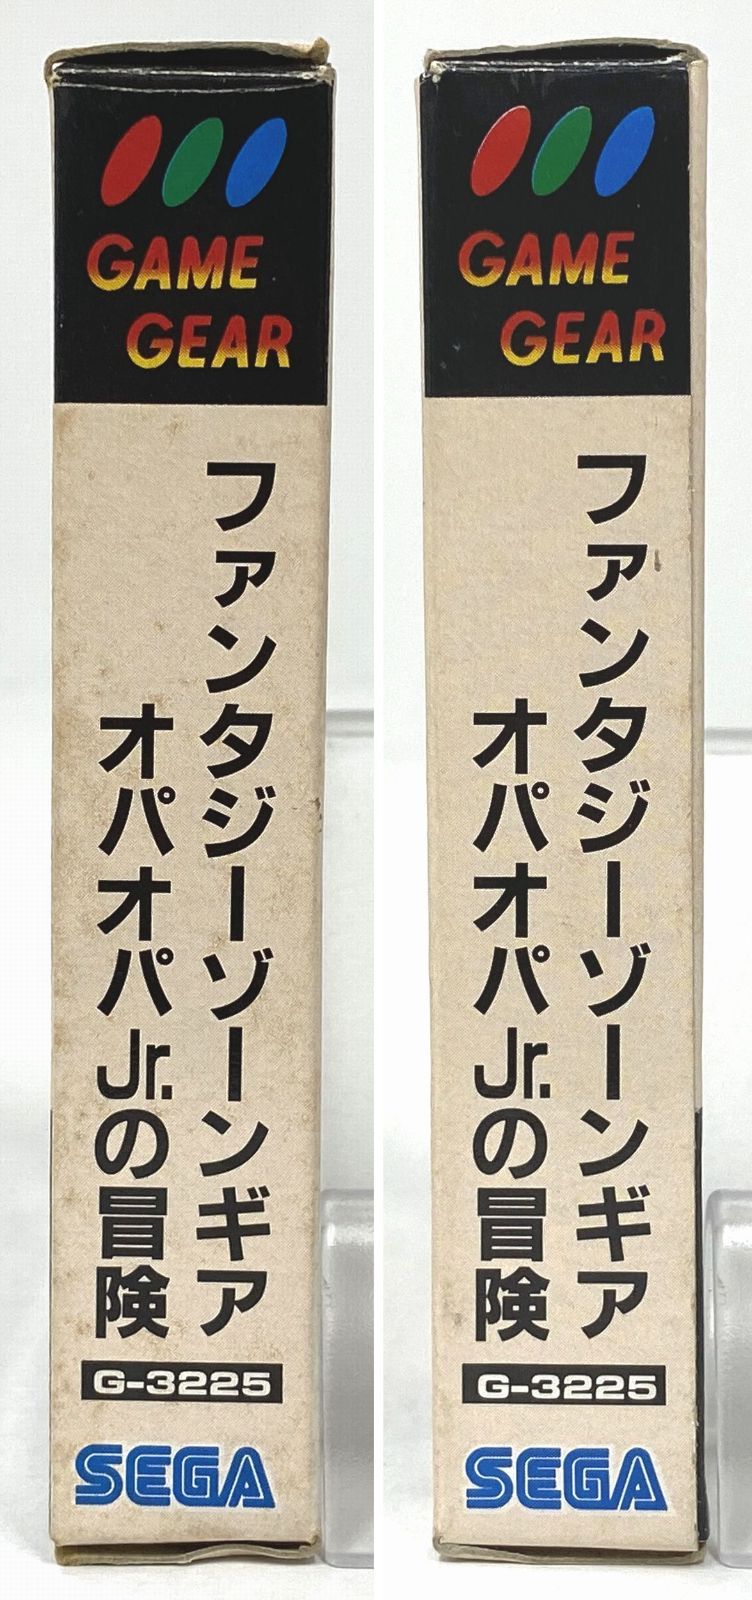 GAME
GEAR
ファンタジーゾーンギア
オパオパJr.の冒険
G-3225
SEGA
GAME
GEAR
ファンタジーゾーンギア
オパオパJr.の冒険
G-3225
SEGA